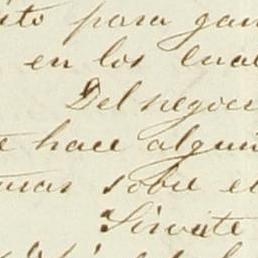 ito para gan
en los cual
Del negoci
e hace algun
mas sobre e
Sirvate